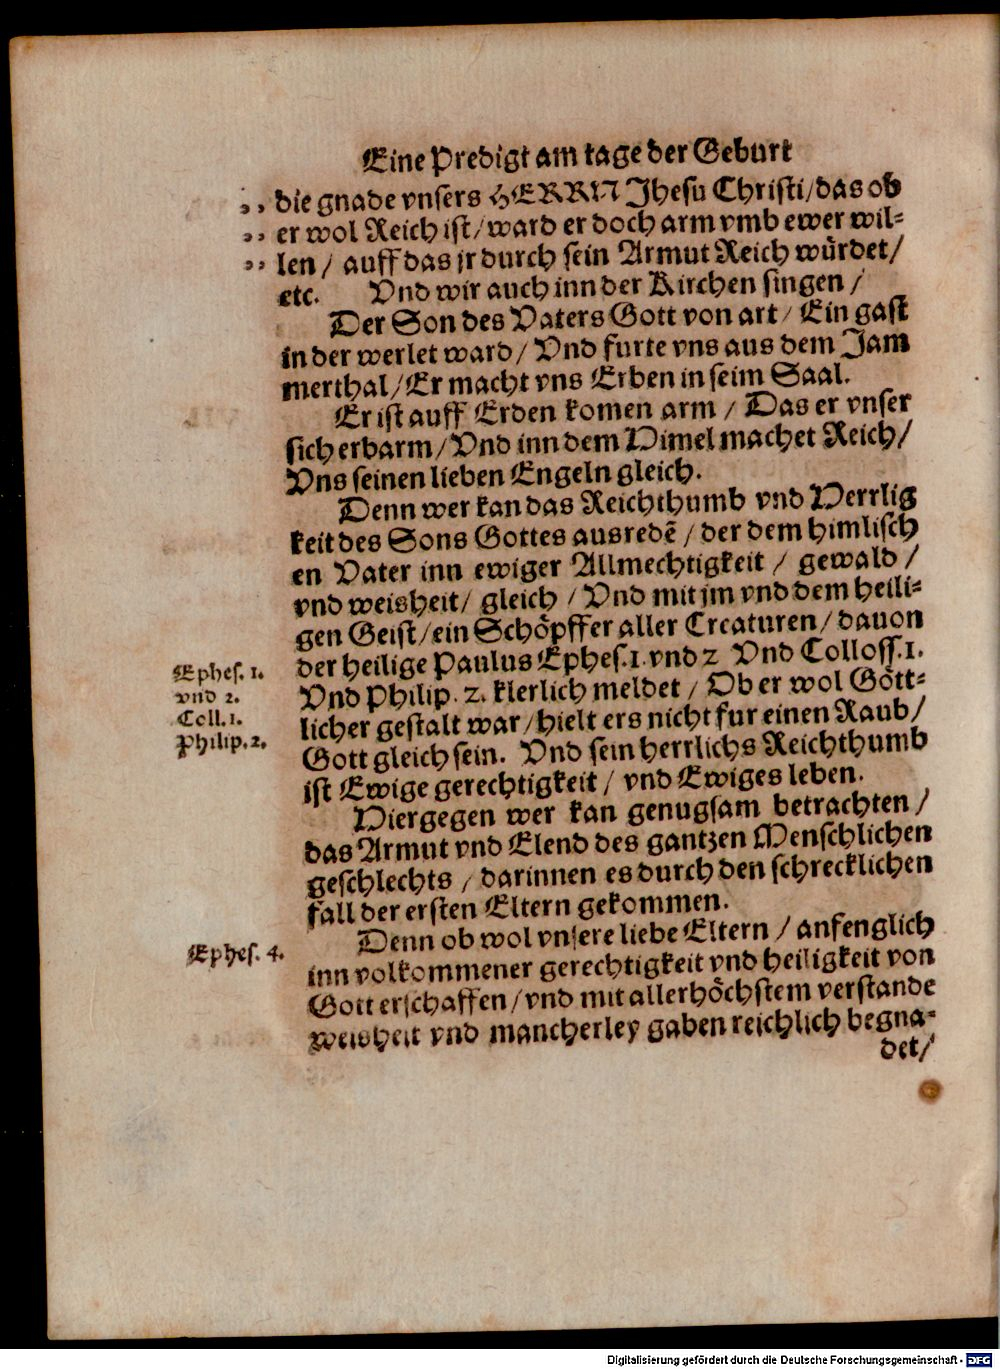 Eine Predigt am tage der Geburt
„ die gnade vnsers HERRN Jhesu Christi/das ob
„ er wol Reich ist/ward er doch arm vmb ewer wil-
„ len / auff das jr durch sein Armut Reich würdet/
etc. Vnd wir auch inn der Kirchen singen /
Der Son des Vaters Gott von art/ Ein gast
in der werlet ward/ Vnd furte vns aus dem Jam
merthal/Er macht vns Erben in seim Saal.
Er ist auff Erden komen arm / Das er vnser
sich erbarm/Vnd inn dem Himel machet Reich/
Vns seinen lieben Engeln gleich.
Denn wer kan das Reichthumb vnd Herrlig
keit des Sons Gottes ausredẽ / der dem himlisch
en Vater inn ewiger Allmechtigkeit / gewald /
vnd weisheit/ gleich / Vnd mit jm vnd dem heili-
gen Geist/ein Schöpffer aller Creaturen/dauon
der heilige Paulus Ephes.1.vnd 2 Vnd Colloss.1.
Vnd Philip. 2. klerlich meldet / Ob er wol Gött-
licher gestalt war/hielt ers nicht fur einen Raub/
Gott gleich sein. Vnd sein herrlichs Reichthumb
ist Ewige gerechtigkeit / vnd Ewiges leben.
Ephes. 1.
vnd 2.
Coll. 1.
Philip. 2.
Hiergegen wer kan genugsam betrachten /
das Armut vnd Elend des gantzen Menschlichen
geschlechts / darinnen es durch den schrecklichen
fall der ersten Eltern gekommen.
Denn ob wol vnsere liebe Eltern / anfenglich
inn volkommener gerechtigkeit vnd heiligkeit von
Gott erschaffen/vnd mit allerhöchstem verstande
weisheit vnd mancherley gaben reichlich begna-
det/
Ephes. 4.
Digitalisierung gefördert durch die Deutsche Forschungsgemeinschaft - DFG